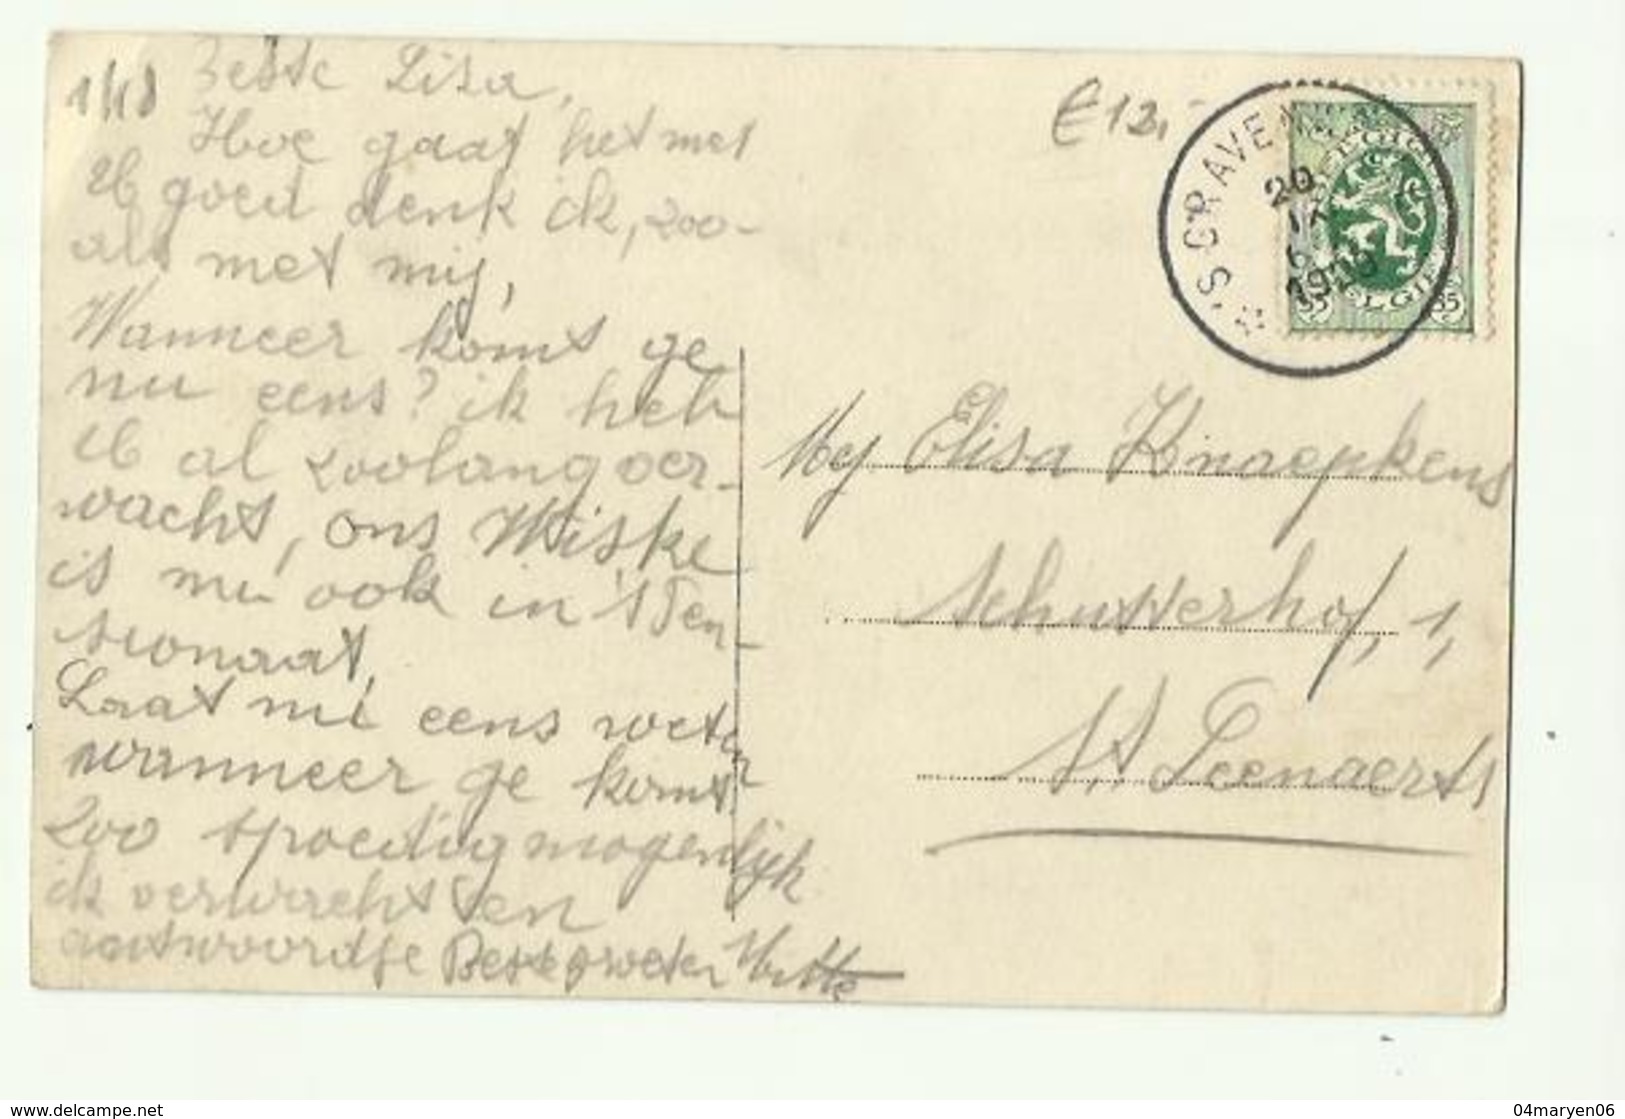 Beste Lisa,
Hoe gaat het met
U goed denk ik, zoo-
als met mij,
Wanneer komt ge
nu eens? ik heb
U al zoolang ver-
wacht, ons Miske
is nu ook in 't Pen-
sionaat,
Laat mij eens weten
wanneer ge komt
zoo spoedig mogenlijk
ik verwacht een
antwoordtje Beste groeten
€ 12,-
'S GRAVEN
20
17
BELGIQUE
BELGIË
35 35
Mej Elisa Knaepkens
Schutterhof, 1,
St Leenaerts
www.delcampe.net
04maryen06